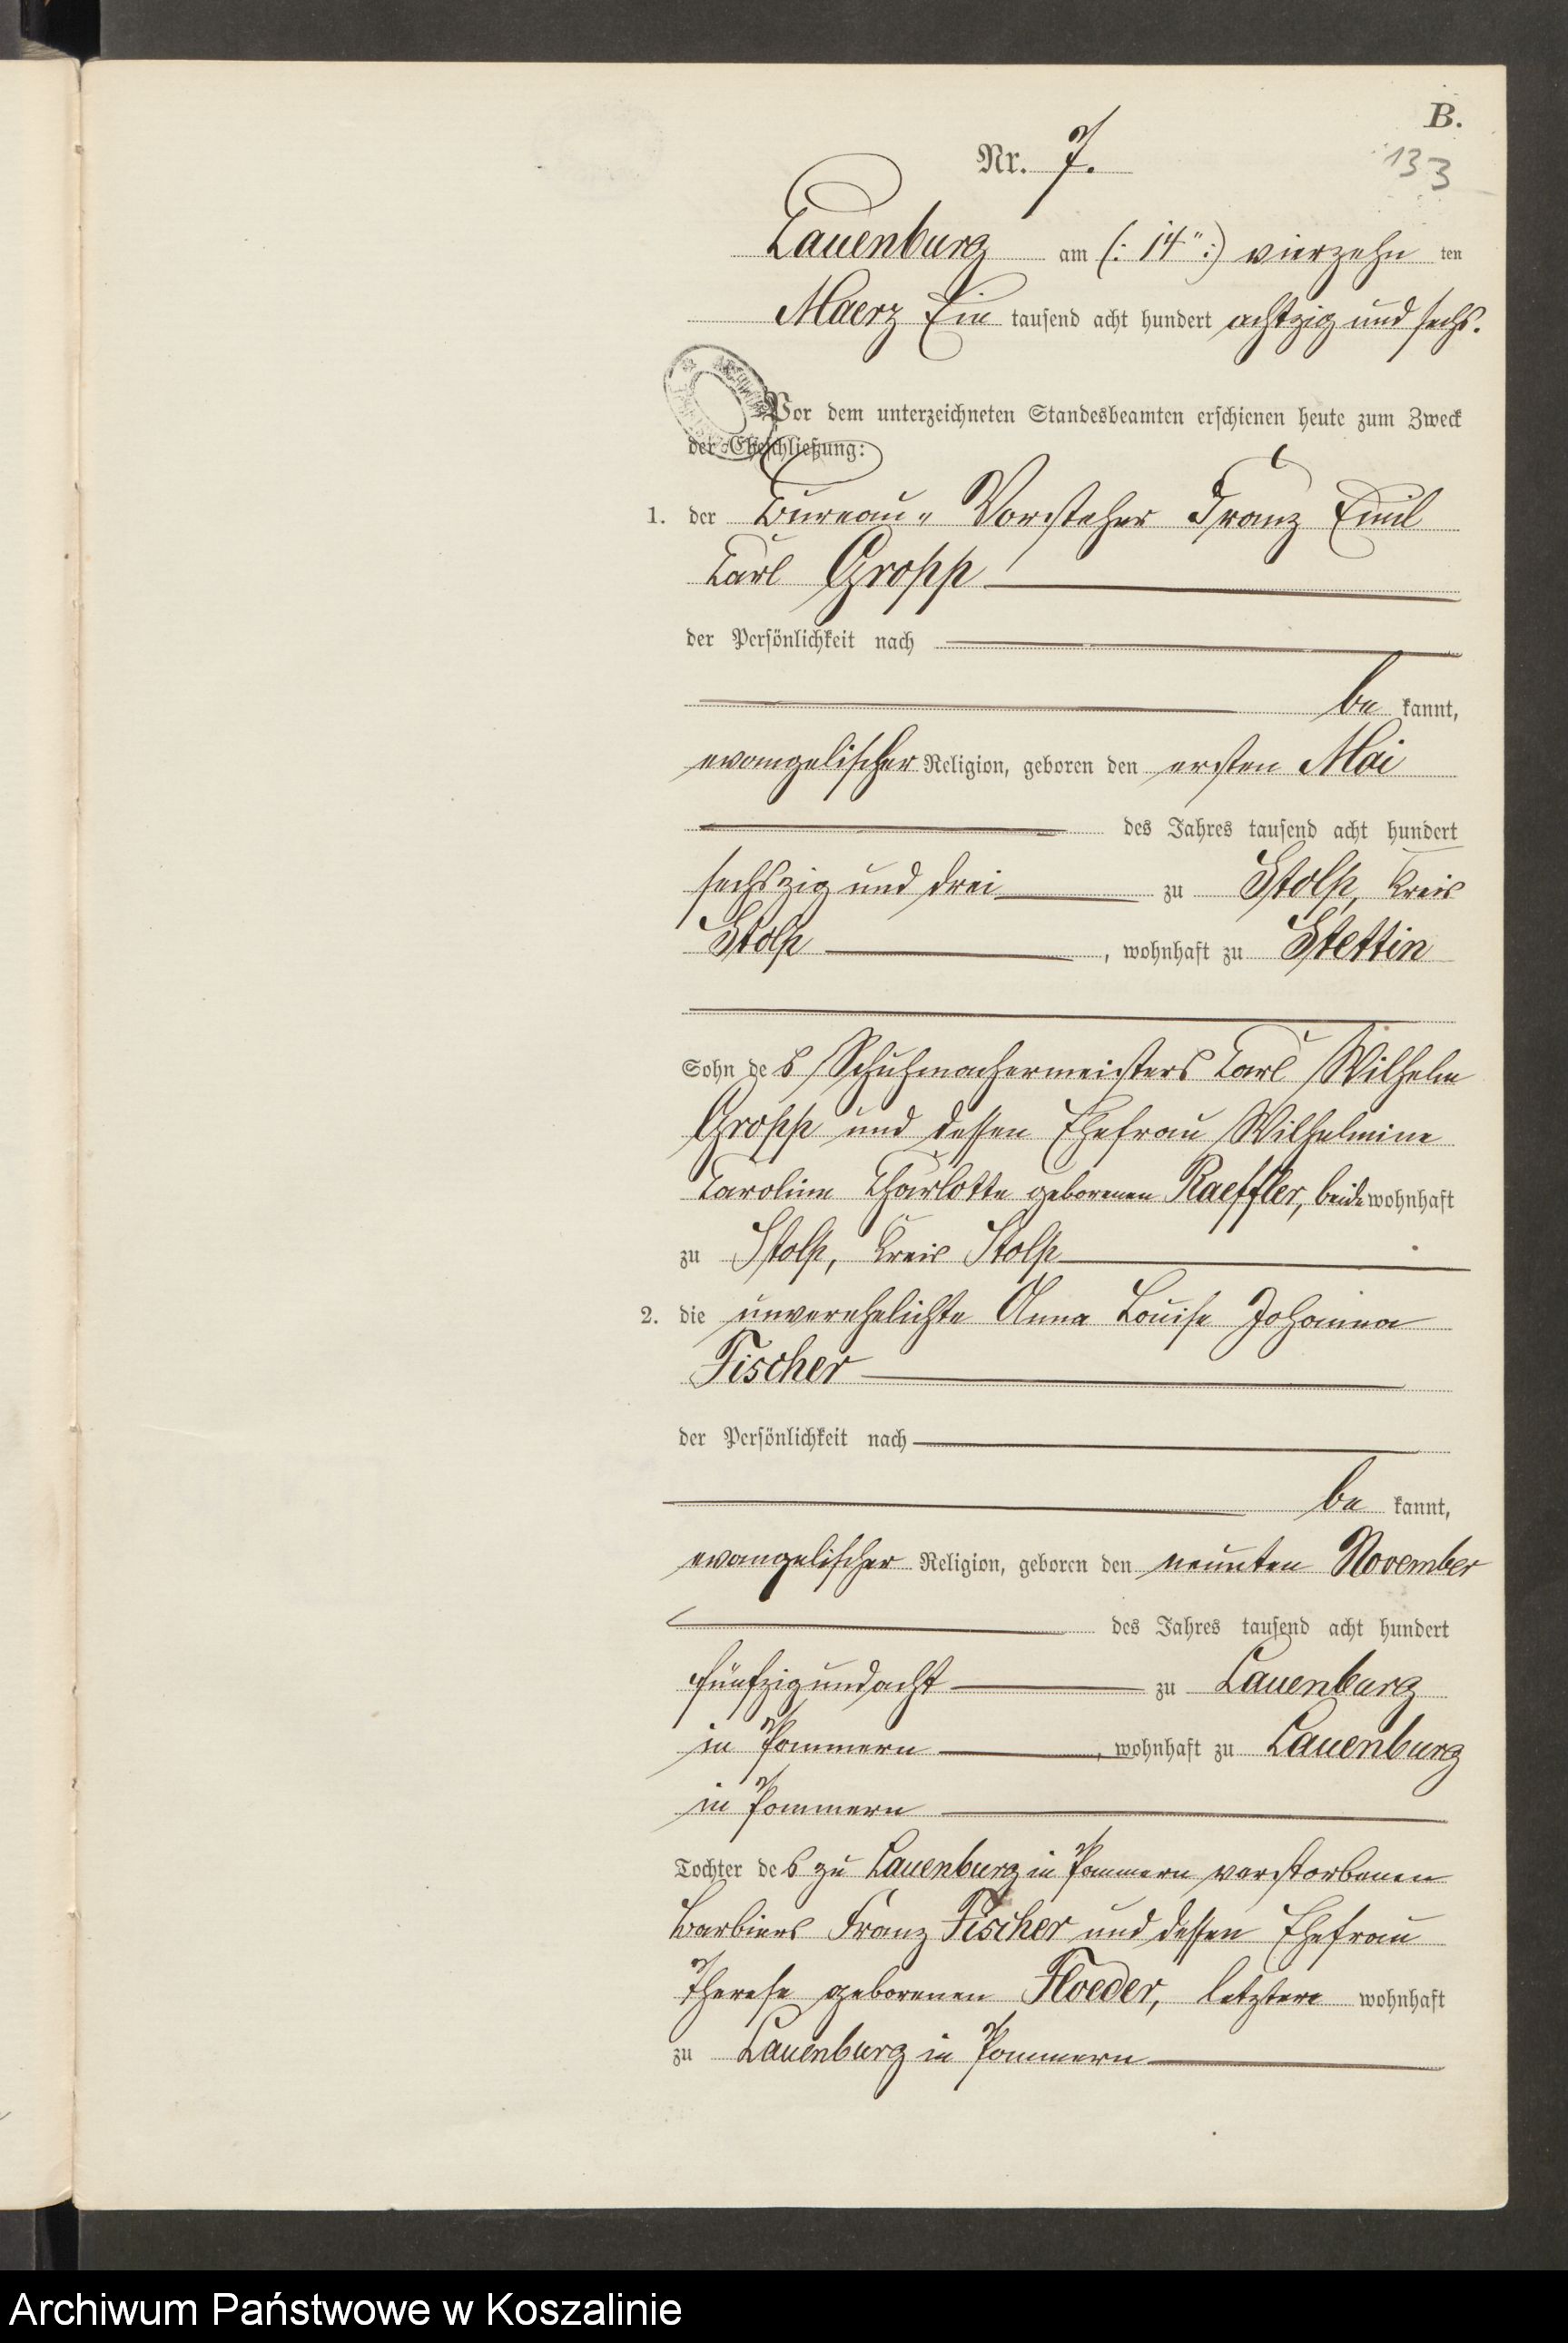 B.
Nr. 7.
133
Lauenburg am (: 14" :) vierzehn ten
Maerz Ein tausend acht hundert achtzig und sechs.
Vor dem unterzeichneten Standesbeamten erschienen heute zum Zweck
der Eheschließung:
1. der Bureau- Vorsteher Franz Emil
Carl Gropp
der Persönlichkeit nach
be kannt,
evangelischer Religion, geboren den ersten Mai
des Jahres tausend acht hundert
sechszig und drei zu Stolp, Kreis
Stolp, wohnhaft zu Stettin
Sohn des Schuhmachermeisters Carl Wilhelm
Gropp und dessen Ehefrau Wilhelmine
Caroline Charlotte geborenen Raeffler, beide wohnhaft
zu Stolp, Kreis Stolp
2. die unverehelichte Anna Louise Johanna
Fischer
der Persönlichkeit nach
be kannt,
evangelischer Religion, geboren den neunten November
des Jahres tausend acht hundert
fünfzig und acht zu Lauenburg
in Pommern, wohnhaft zu Lauenburg
in Pommern
Tochter des zu Lauenburg in Pommern verstorbenen
Barbiers Franz Fischer und dessen Ehefrau
Therese geborenen Floeder, letztere wohnhaft
zu Lauenburg in Pommern
Archiwum Państwowe w Koszalinie